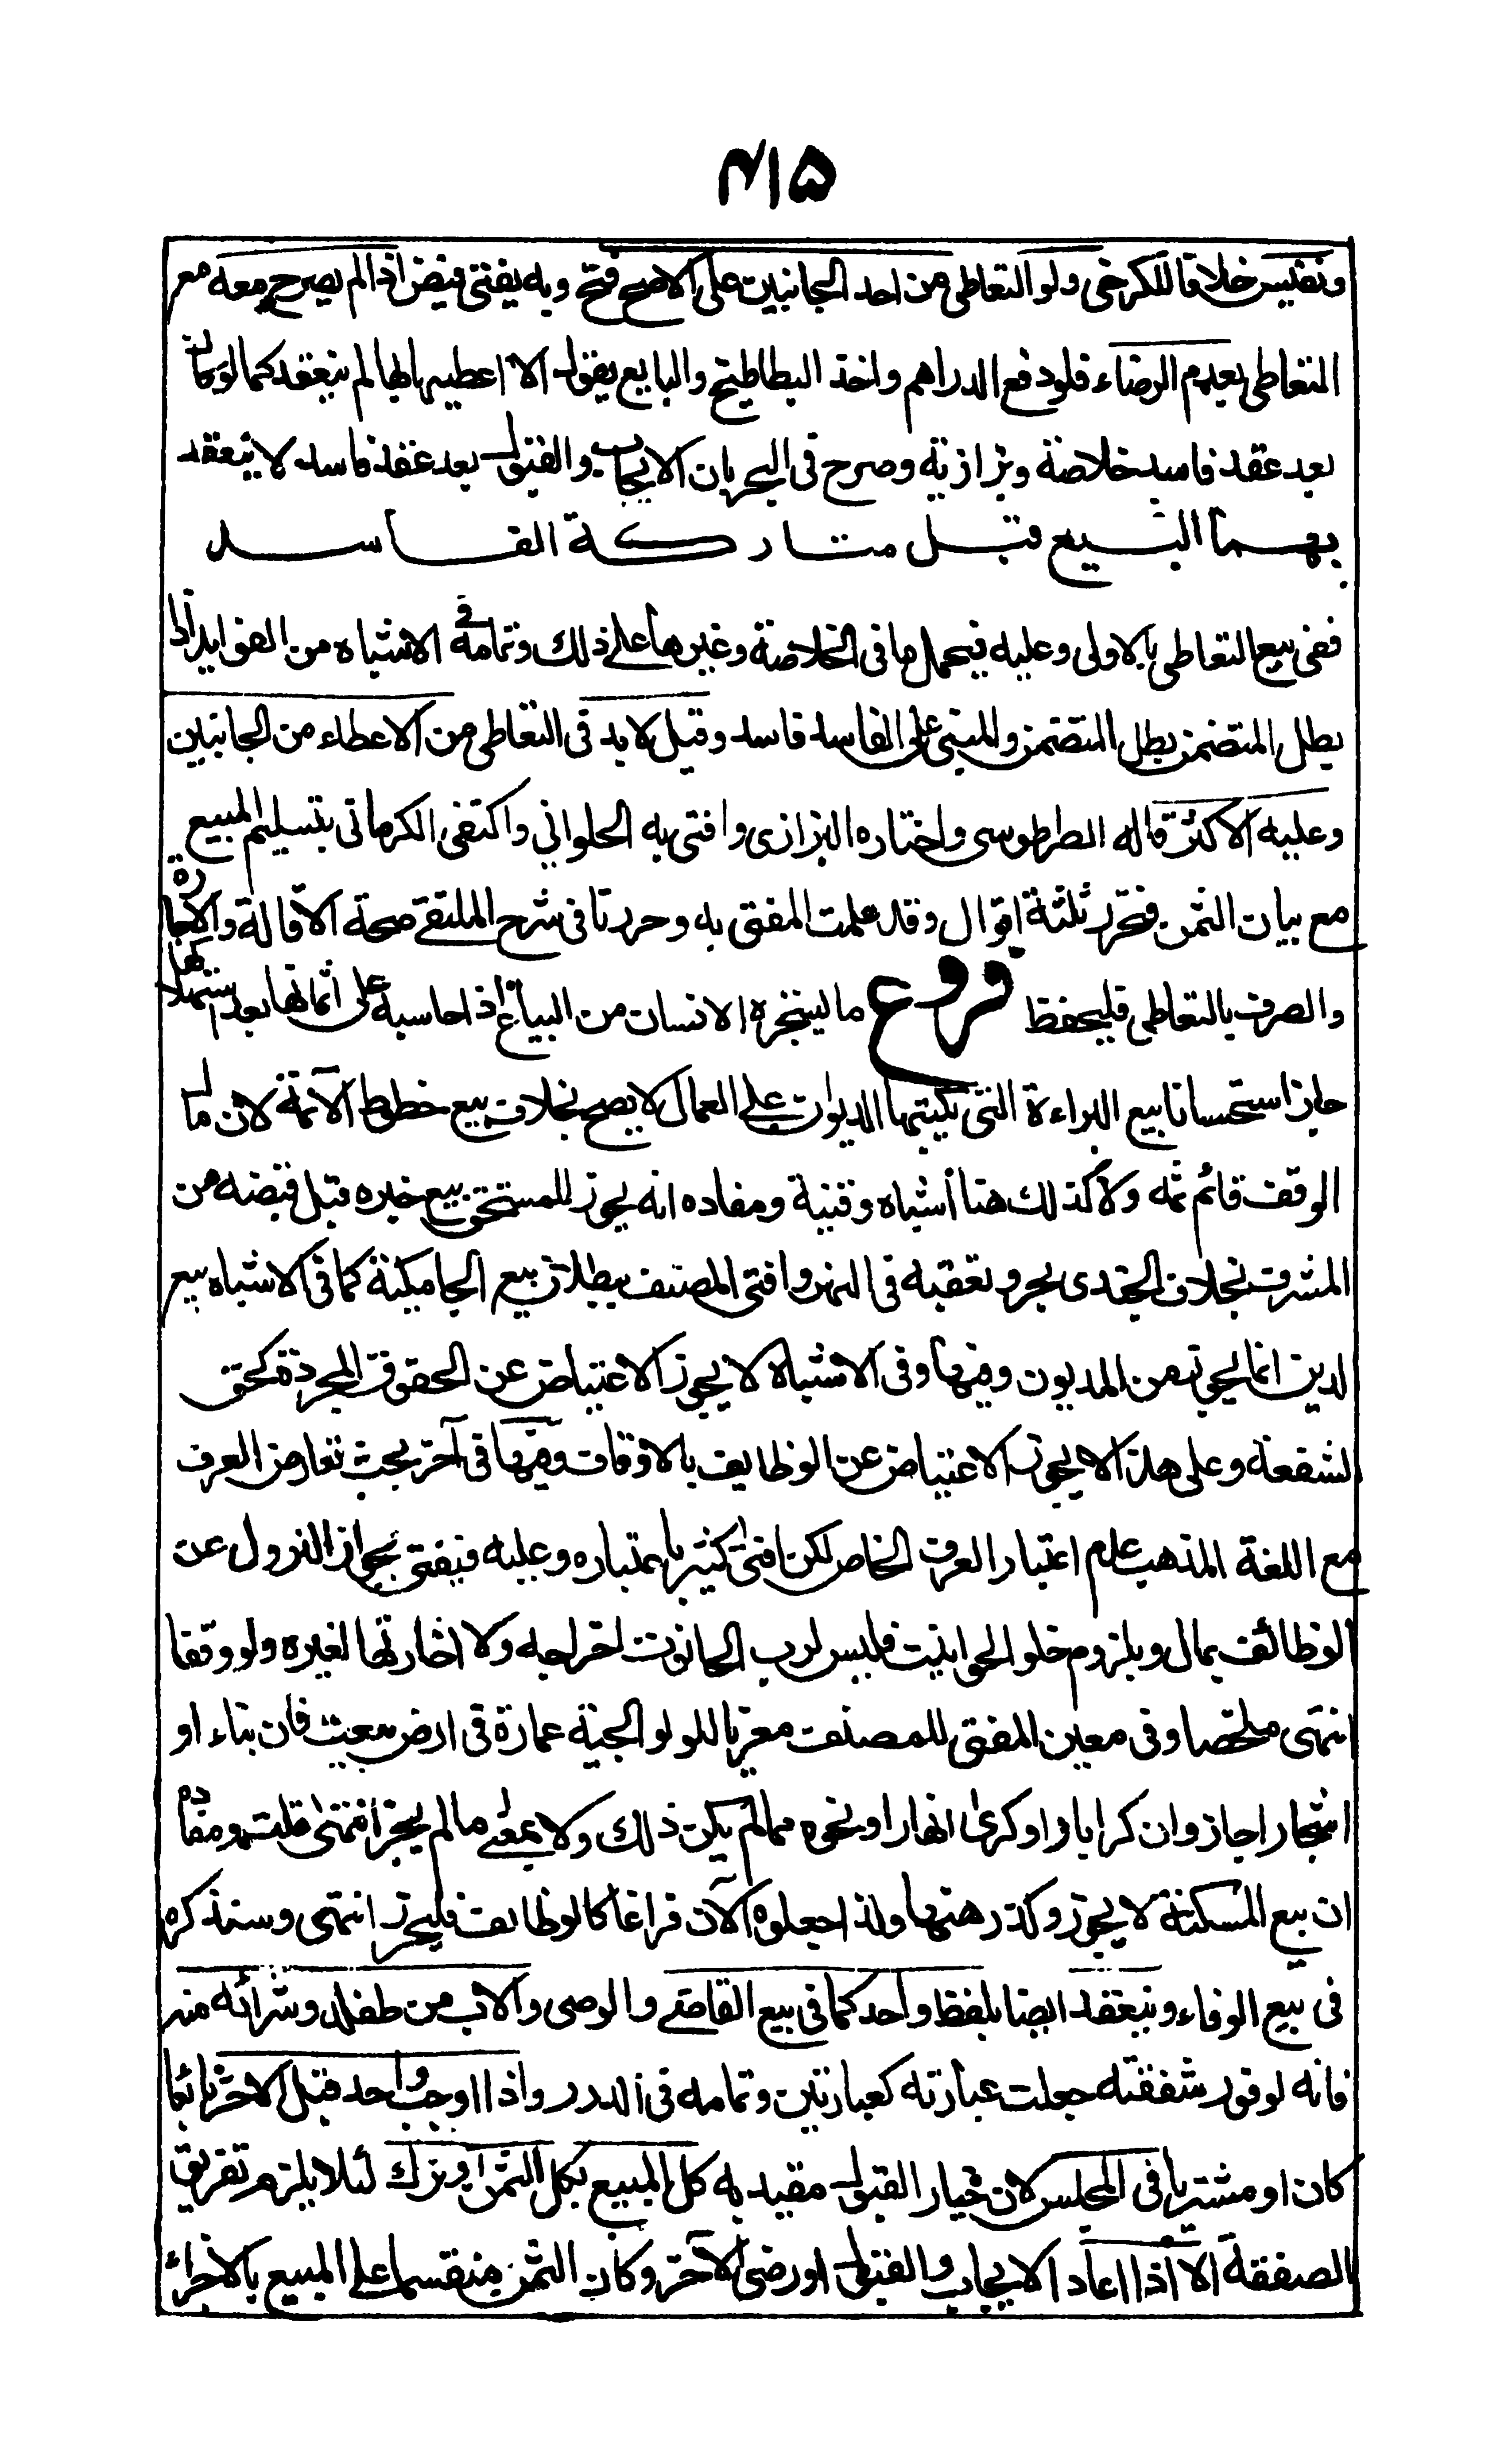 ٤١٥
ونفيس خلافا للكرخى ولو التعاطى من احد الجانبين على الاصح فتح وبه يفتى فيض اذا لم يصرح معه مع
التعاطى بعدم الرضاء فلو دفع الدراهم واخذ البطاطيخ والبايع يقول لا اعطيها بها لم ينعقد كما لو كان
بعد عقد فاسد خلاصة وبزازية وصرح فى البحر بان الايجاب والقبول بعد عقد فاسد لا ينعقد
بهما البيع قبل متاركة الفاسد
ففى بيع التعاطى بالاولى وعليه فيحمل ما فى الخلاصة وغيرها على ذلك وتمامه فى الاشباه من الفوايد اذا
بطل المتضمن بطل المتضمن والمبنى على الفاسد فاسد وقيل لابد فى التعاطى من الاعطاء من الجانبين
وعليه الاكثر قاله الطرطوسى واختاره البزازى وافتى به الحلوانى واكتفى الكرمانى بتسليم المبيع
مع بيان الثمن فتحرر ثلثة اقوال وقد علمت المفتى به وحررنا فى شرح الملتقى صحة الاقالة والاجارة
والصرف بالتعاطى فليحفظ فروع ما يستجره الانسان من البياع اذا حاسبه على اثمانها بعد استهلاكها
جاز استحسانا بيع البراءة التى يكتبها الديوان على العمال لا يصح بخلاف بيع خطوط الائمة لان مال
الوقف قائم ثمه ولا كذلك هنا أشباه وقنية ومفاده انه يجوز للمستحق بيع خبزه قبل قبضه من
المشرف بخلاف الجندى بحر وتعقبه فى النهر وافتى المصنف ببطلان بيع الجامكية كما فى الاشباه بيع
لدين انما يجوز من المديون وفيها وفى الاشباه لا يجوز الاعتياض عن الحقوق المجردة كحق
لشفعة وعلى هذا لا يجوز الاعتياض عن الوظايف بالاوقاف وفيها فى آخر بحث تعارض العرف
مع اللغة المذهب عدم اعتبار العرف الخاص لكن افتى كثير باعتباره وعليه فيفتى بجواز النزول عن
الوظائف بمال وبلزوم خلو الحوانيت فليس لرب الحانوت اخراجه ولا اجارتها لغيره ولو وقفا
انتهى ملخصا وفى معين المفتى للمصنف معزيا للولوالجية عمارة فى ارض بيعت فان بناء او
اشجارا جاز وان كرابا او كرى انهارا ونحوه مما لم يكن ذلك ولا بمعنى مال لم يجز انتهى قلت ومفاده
ان بيع المسكنة لا يجوز وكذا رهنها ولذا جعلوه الآن فراغا كالوظائف فليحرر انتهى وسنذكره
فى بيع الوفاء وينعقد ايضا بلفظ واحد كما فى بيع القاضى والوصى والاب من طفله وشرائه منه
فانه لوفور شفقته جعلت عبارته كعبارتين وتمامه فى الدرر واذا اوجب واحد قبل الاخر بائعا
كان او مشتريا فى المجلس لان خيار القبول مقيد به كل المبيع بكل الثمن او ترك لئلا يلزم تفريق
الصفقة الا اذا اعاد الايجاب والقبول او رضى الآخر وكان الثمن منقسما على المبيع بالاجزاء